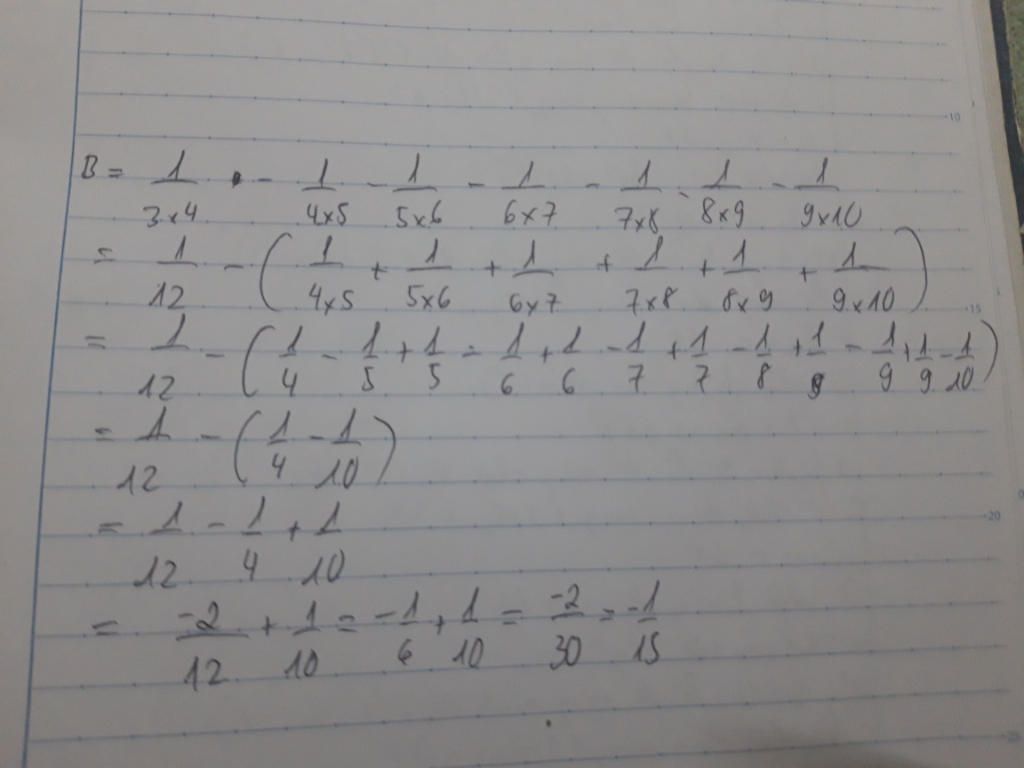 B = 1/(3×4) - 1/(4×5) - 1/(5×6) - 1/(6×7) - 1/(7×8) - 1/(8×9) - 1/(9×10)
= 1/12 - (1/(4×5) + 1/(5×6) + 1/(6×7) + 1/(7×8) + 1/(8×9) + 1/(9×10))
= 1/12 - (1/4 - 1/5 + 1/5 - 1/6 + 1/6 - 1/7 + 1/7 - 1/8 + 1/8 - 1/9 + 1/9 - 1/10)
= 1/12 - (1/4 - 1/10)
= 1/12 - 1/4 + 1/10
= -2/12 + 1/10 = -1/6 + 1/10 = -2/30 = -1/15
10
15
20